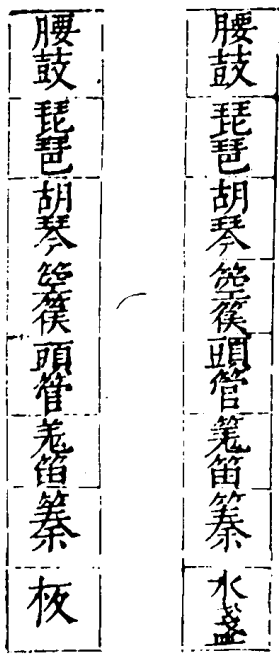 腰鼓 琵琶 胡琴 箜篌 頭管 羗笛 𥱧 水盞
腰鼓 琵琶 胡琴 箜篌 頭管 羗笛 𥱧 板